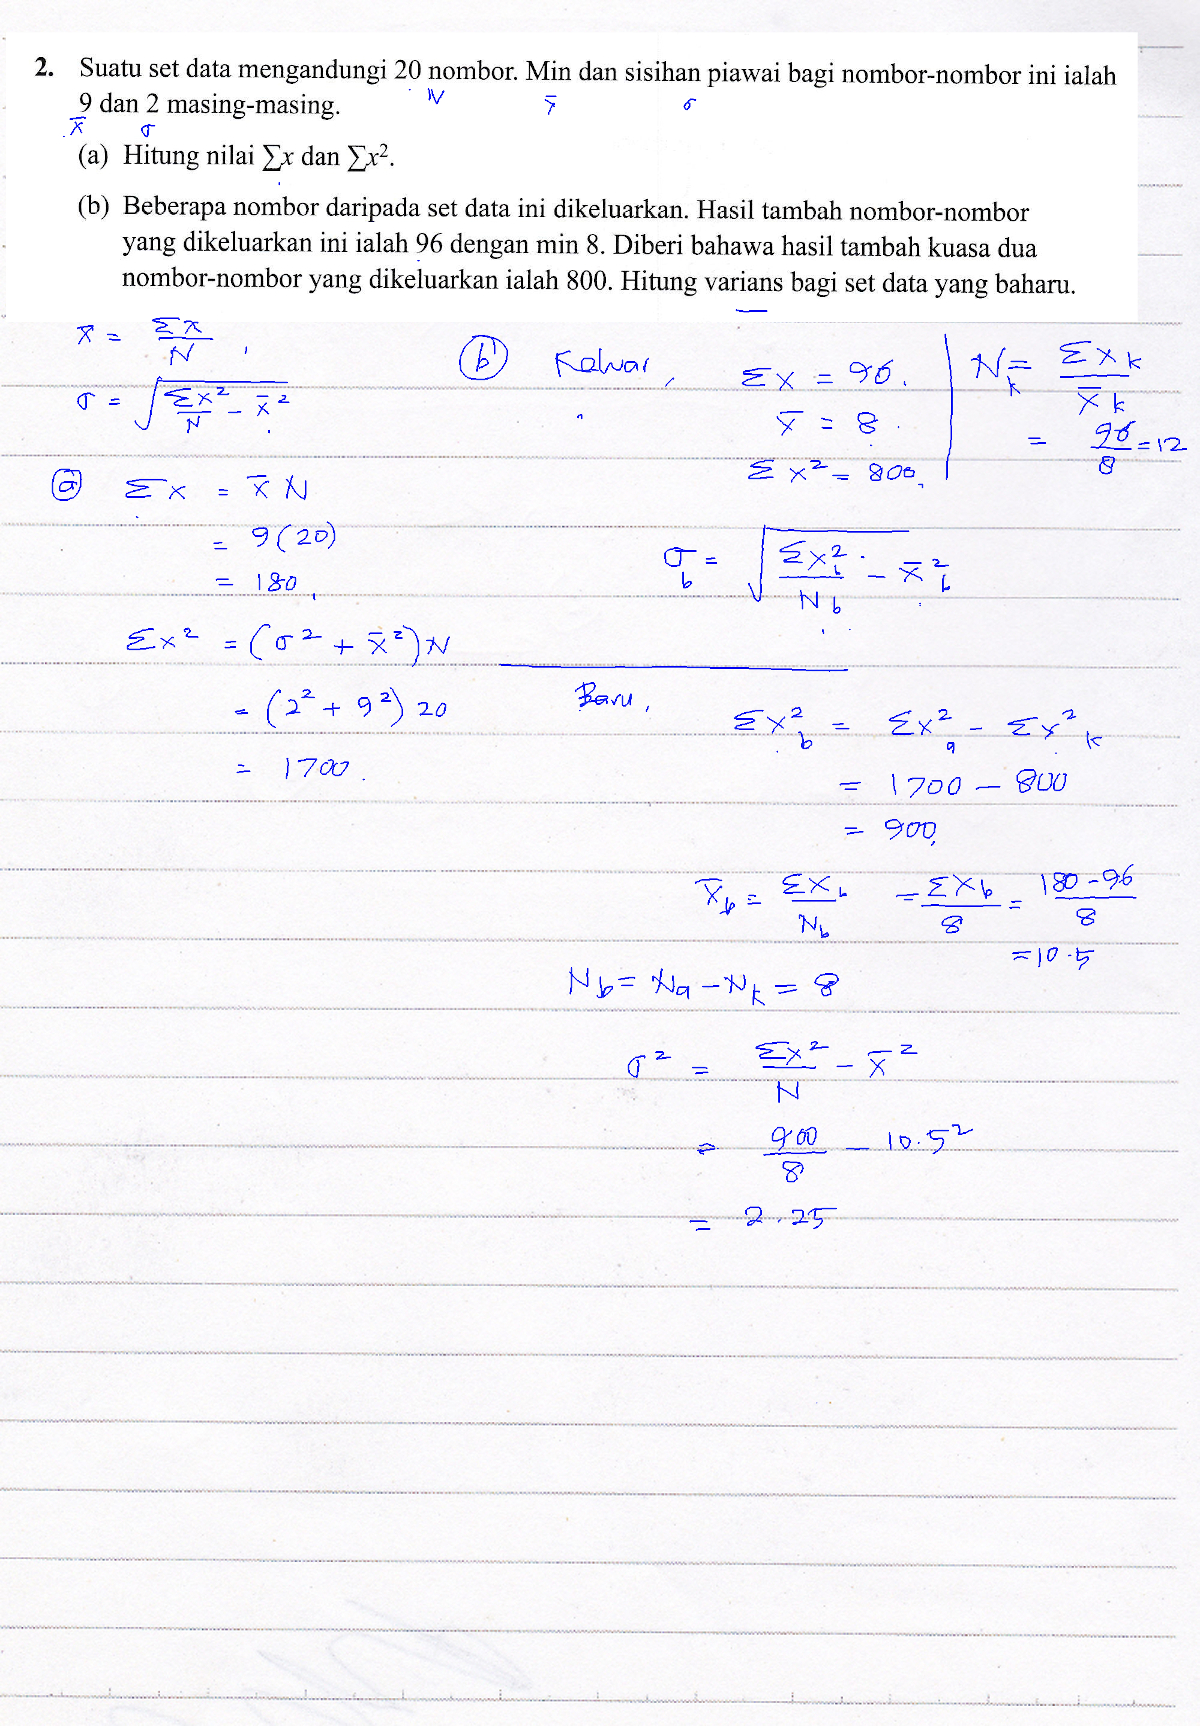 2. Suatu set data mengandungi 20 nombor. Min dan sisihan piawai bagi nombor-nombor ini ialah
N x̄ σ
9 dan 2 masing-masing.
x̄ σ
(a) Hitung nilai ∑x dan ∑x².
(b) Beberapa nombor daripada set data ini dikeluarkan. Hasil tambah nombor-nombor
yang dikeluarkan ini ialah 96 dengan min 8. Diberi bahawa hasil tambah kuasa dua
nombor-nombor yang dikeluarkan ialah 800. Hitung varians bagi set data yang baharu.
x̄ = Σx/N
σ = √(Σx²/N - x̄²)
(a) Σx = x̄ N
= 9(20)
= 180
Σx² = (σ² + x̄²)N
= (2² + 9²) 20
= 1700
(b) Keluar, Σx = 96
x̄ = 8
Σx² = 800
N_k = Σx_k/x̄_k
= 96/8 = 12
σ_b = √(Σx²_b/N_b - x̄²_b)
Baru, Σx²_b = Σx²_a - Σx²_k
= 1700 - 800
= 900
x̄_b = Σx_b/N_b = Σx_b/8 = 180-96/8
= 10.5
N_b = N_a - N_k = 8
σ² = Σx²/N - x̄²
= 900/8 - 10.5²
= 2.25